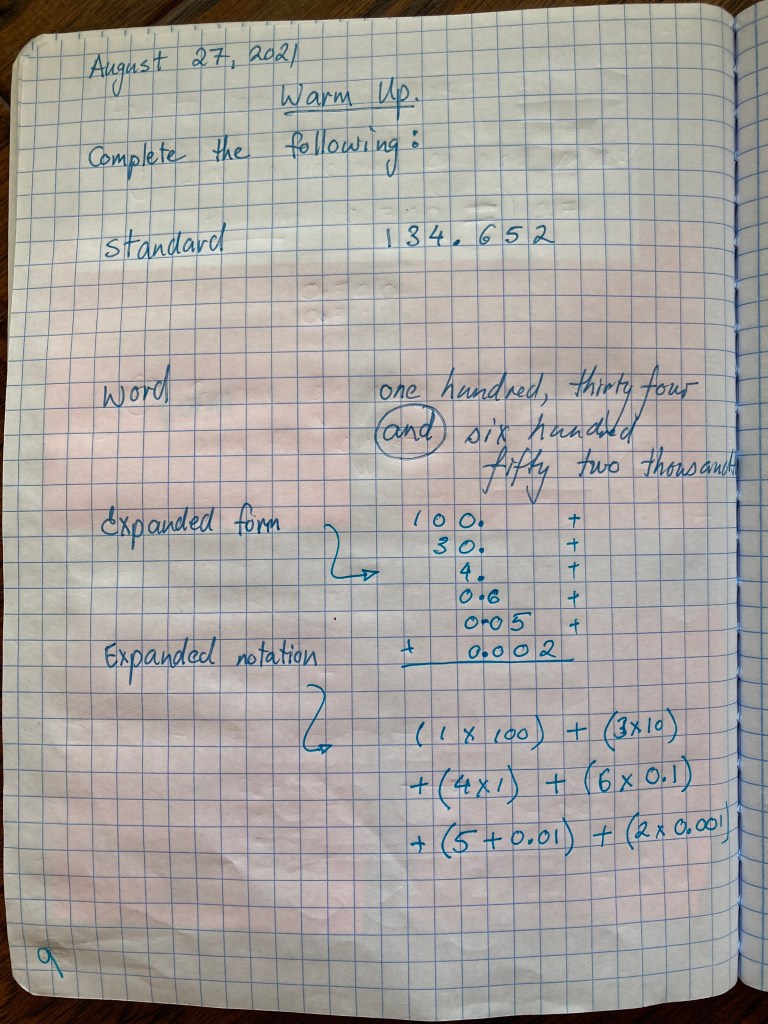 August 27, 2021
Warm Up.
Complete the following:
Standard 134.652
Word one hundred, thirty four
and six hundred
fifty two thousandt
Expanded form 100. +
30. +
4. +
0.6 +
0.05 +
Expanded notation + 0.002
(1 x 100) + (3x10)
+ (4x1) + (6 x 0.1)
+ (5 + 0.01) + (2 x 0.001)
9